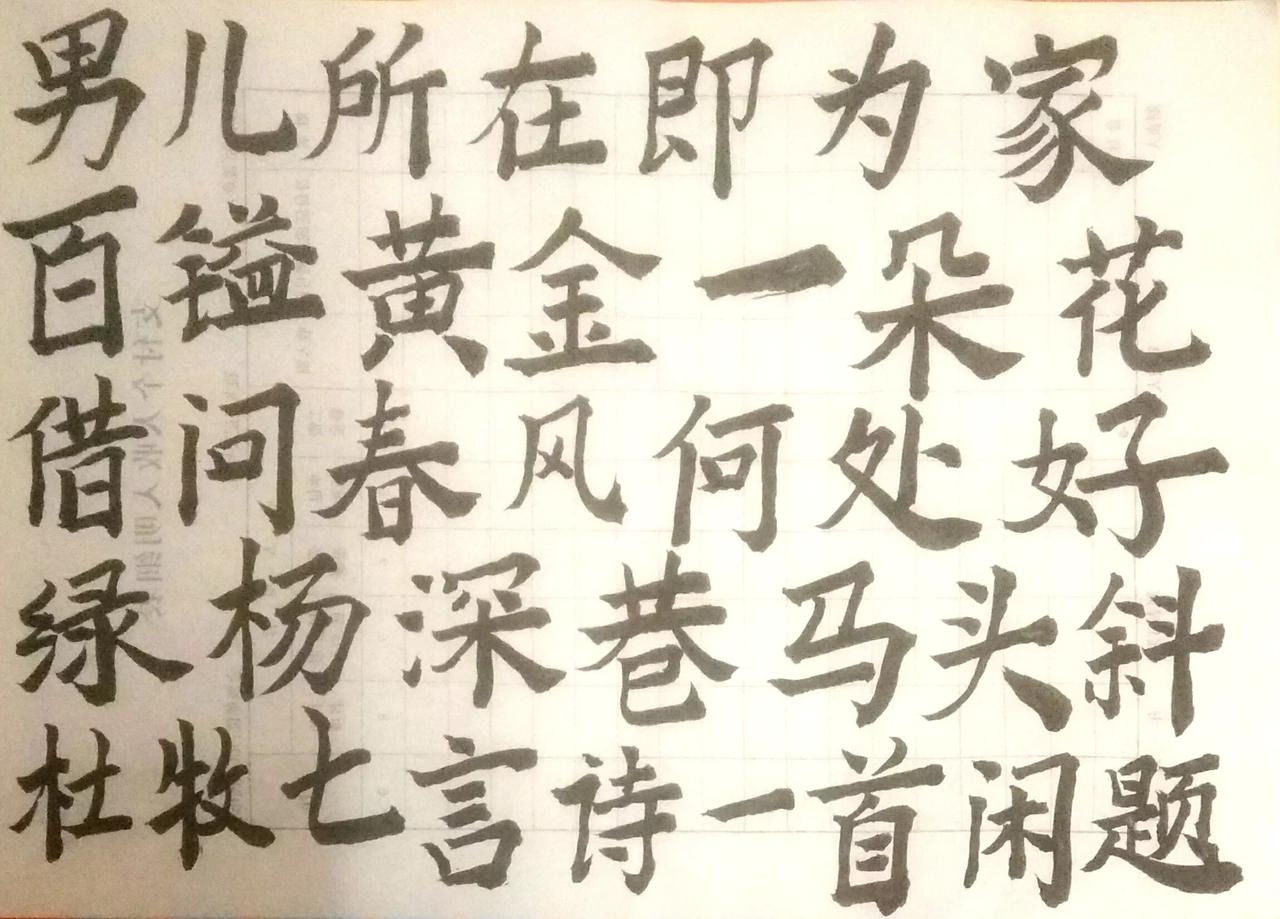 男儿所在即为家
百镒黄金一朵花
借问春风何处好
绿杨深巷马头斜
杜牧七言诗一首闲题